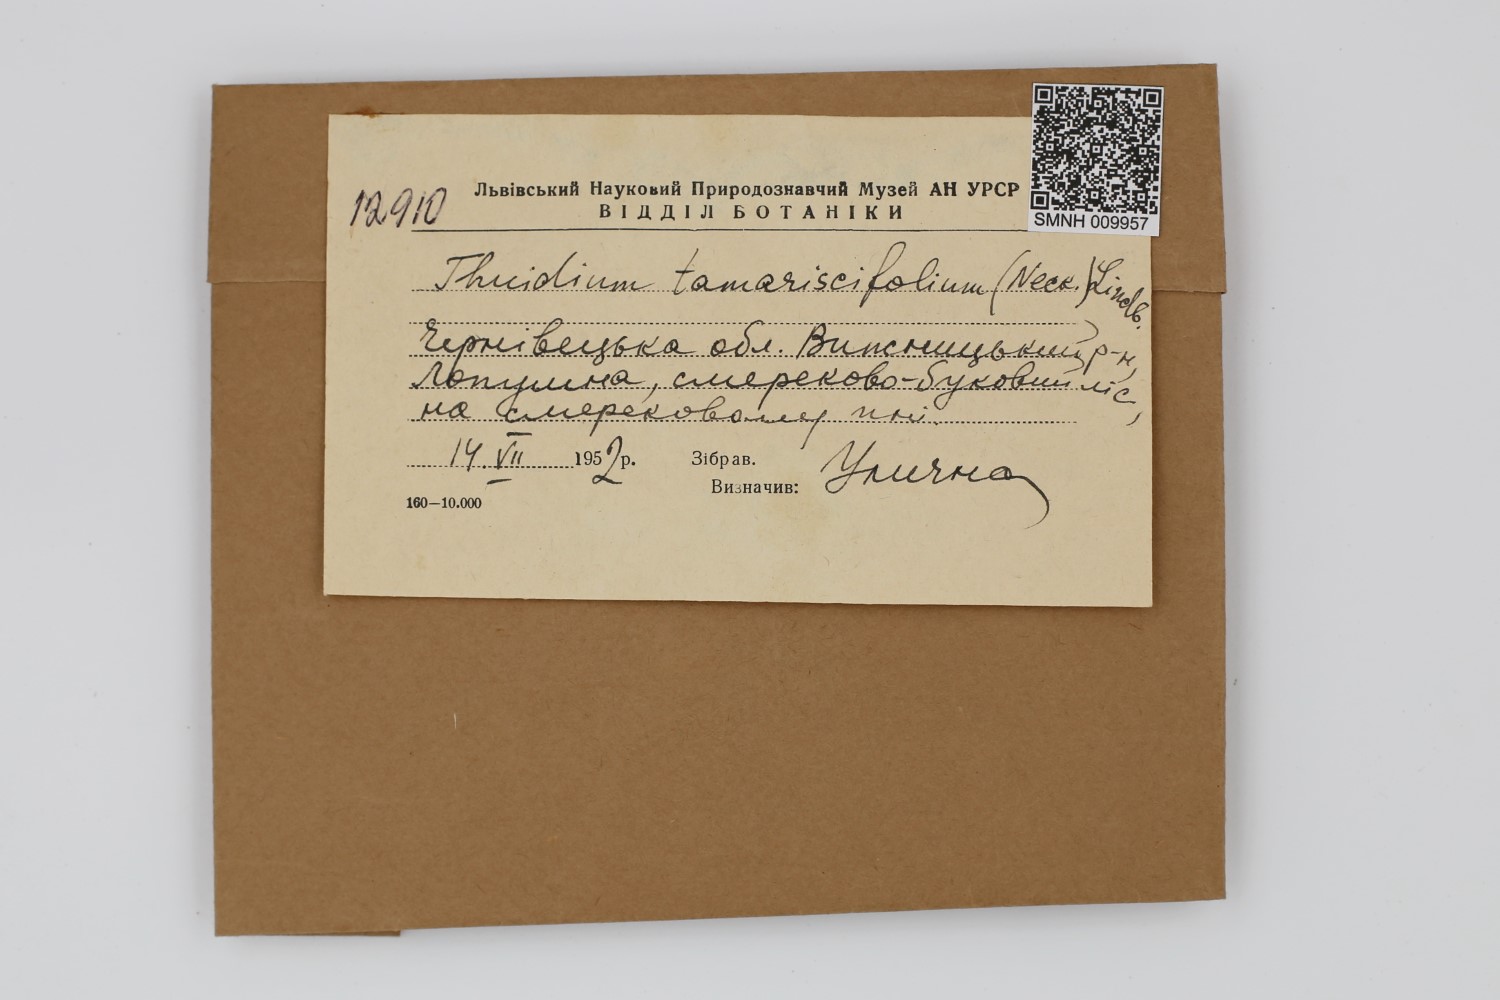 SMNH 009957
12910
Львівський Науковий Природознавчий Музей АН УРСР
ВІДДІЛ БОТАНІКИ
Thuidium tamariscifolium (Neck.) Lindb.
Чернівецька обл. Вижницький р-н,
Лопушна, смереково-буковий ліс,
на смерековому пні.
14.VII 1952 р. Зібрав.
Визначив: Улична
160—10.000